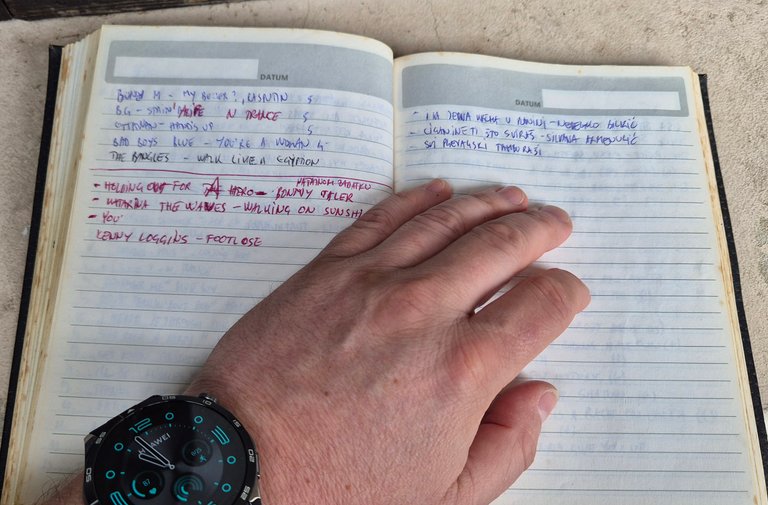 DATUM
BONEY M - MY BELLER?, RASPUTIN 5
BG - STAIN' ALIVE N TRANCE 5
OTTAWAN - HANDS UP 5
BAD BOYS BLUE - YOU'RE A WOMAN 4
THE BANGLES - WALK LIKE A EGYPTION
- HOLDING OUT FOR A HERO - BONNY TALER
- KATARINA THE WAVES - WALKING ON SUNSHI
- YOU
KENNY LOGGINS - FOOTLOSE
DATUM
- IMA JEDNA U - NEDELJKO BILKIĆ
- CIGANINE TI ŠTO SVIRAŠ - SILVANA ARMENULIĆ
SVI TAMBURAŠI
HUAWEI